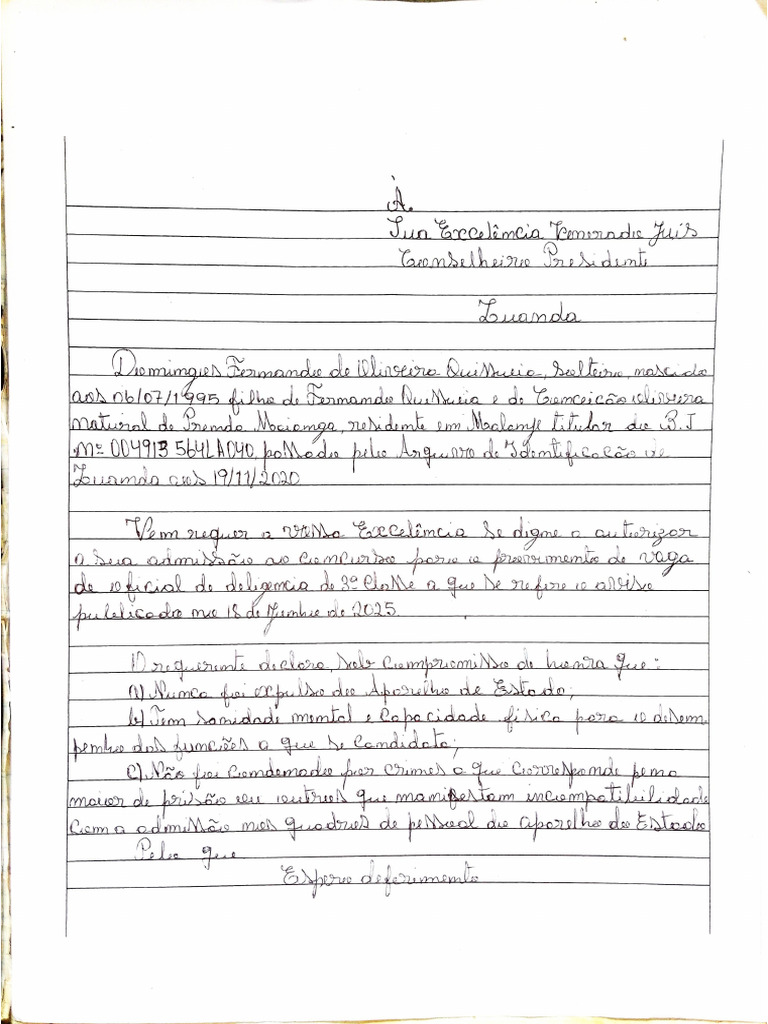 À
Sua Excelência Venerado Juis
Conselheiro Presidente
Luanda
Domingos Fernando de Oliveira Quissueia, Solteiro, nascido
aos 06/07/1995 filho de Fernando Quissueia e de Conceição Oliveira
natural de Prenda Maianga, residente em Malanje titular do B.I
Nº 004913564LA040, passado pelo Arquivo de Identificação de
Luanda aos 19/11/2020
Vem requer a vossa Excelência se digne a autorizar
a sua admissão ao concurso para o provimento de vaga
de oficial de deligencia de 3ª Classe a que se refere o aviso
publicado no 18 de Junho de 2025.
O requerente declara, sob compromisso de honra que:
a) Nunca foi expulso do Aparelho de Estado;
b) Tem sanidade mental e capacidade fisica para o desem
penho das funções a que se candidata;
c) Não foi condenado por crimes a que corresponde pena
maior de prisão ou outros que manifestam incompatibilidade
com a admissão nos quadros de pessoal do aparelho do Estado
Pelo que
Espero deferimento